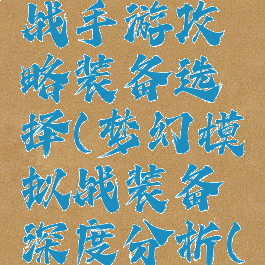 战手游攻
略装备选
择(梦幻模
拟战装备
深度分析(